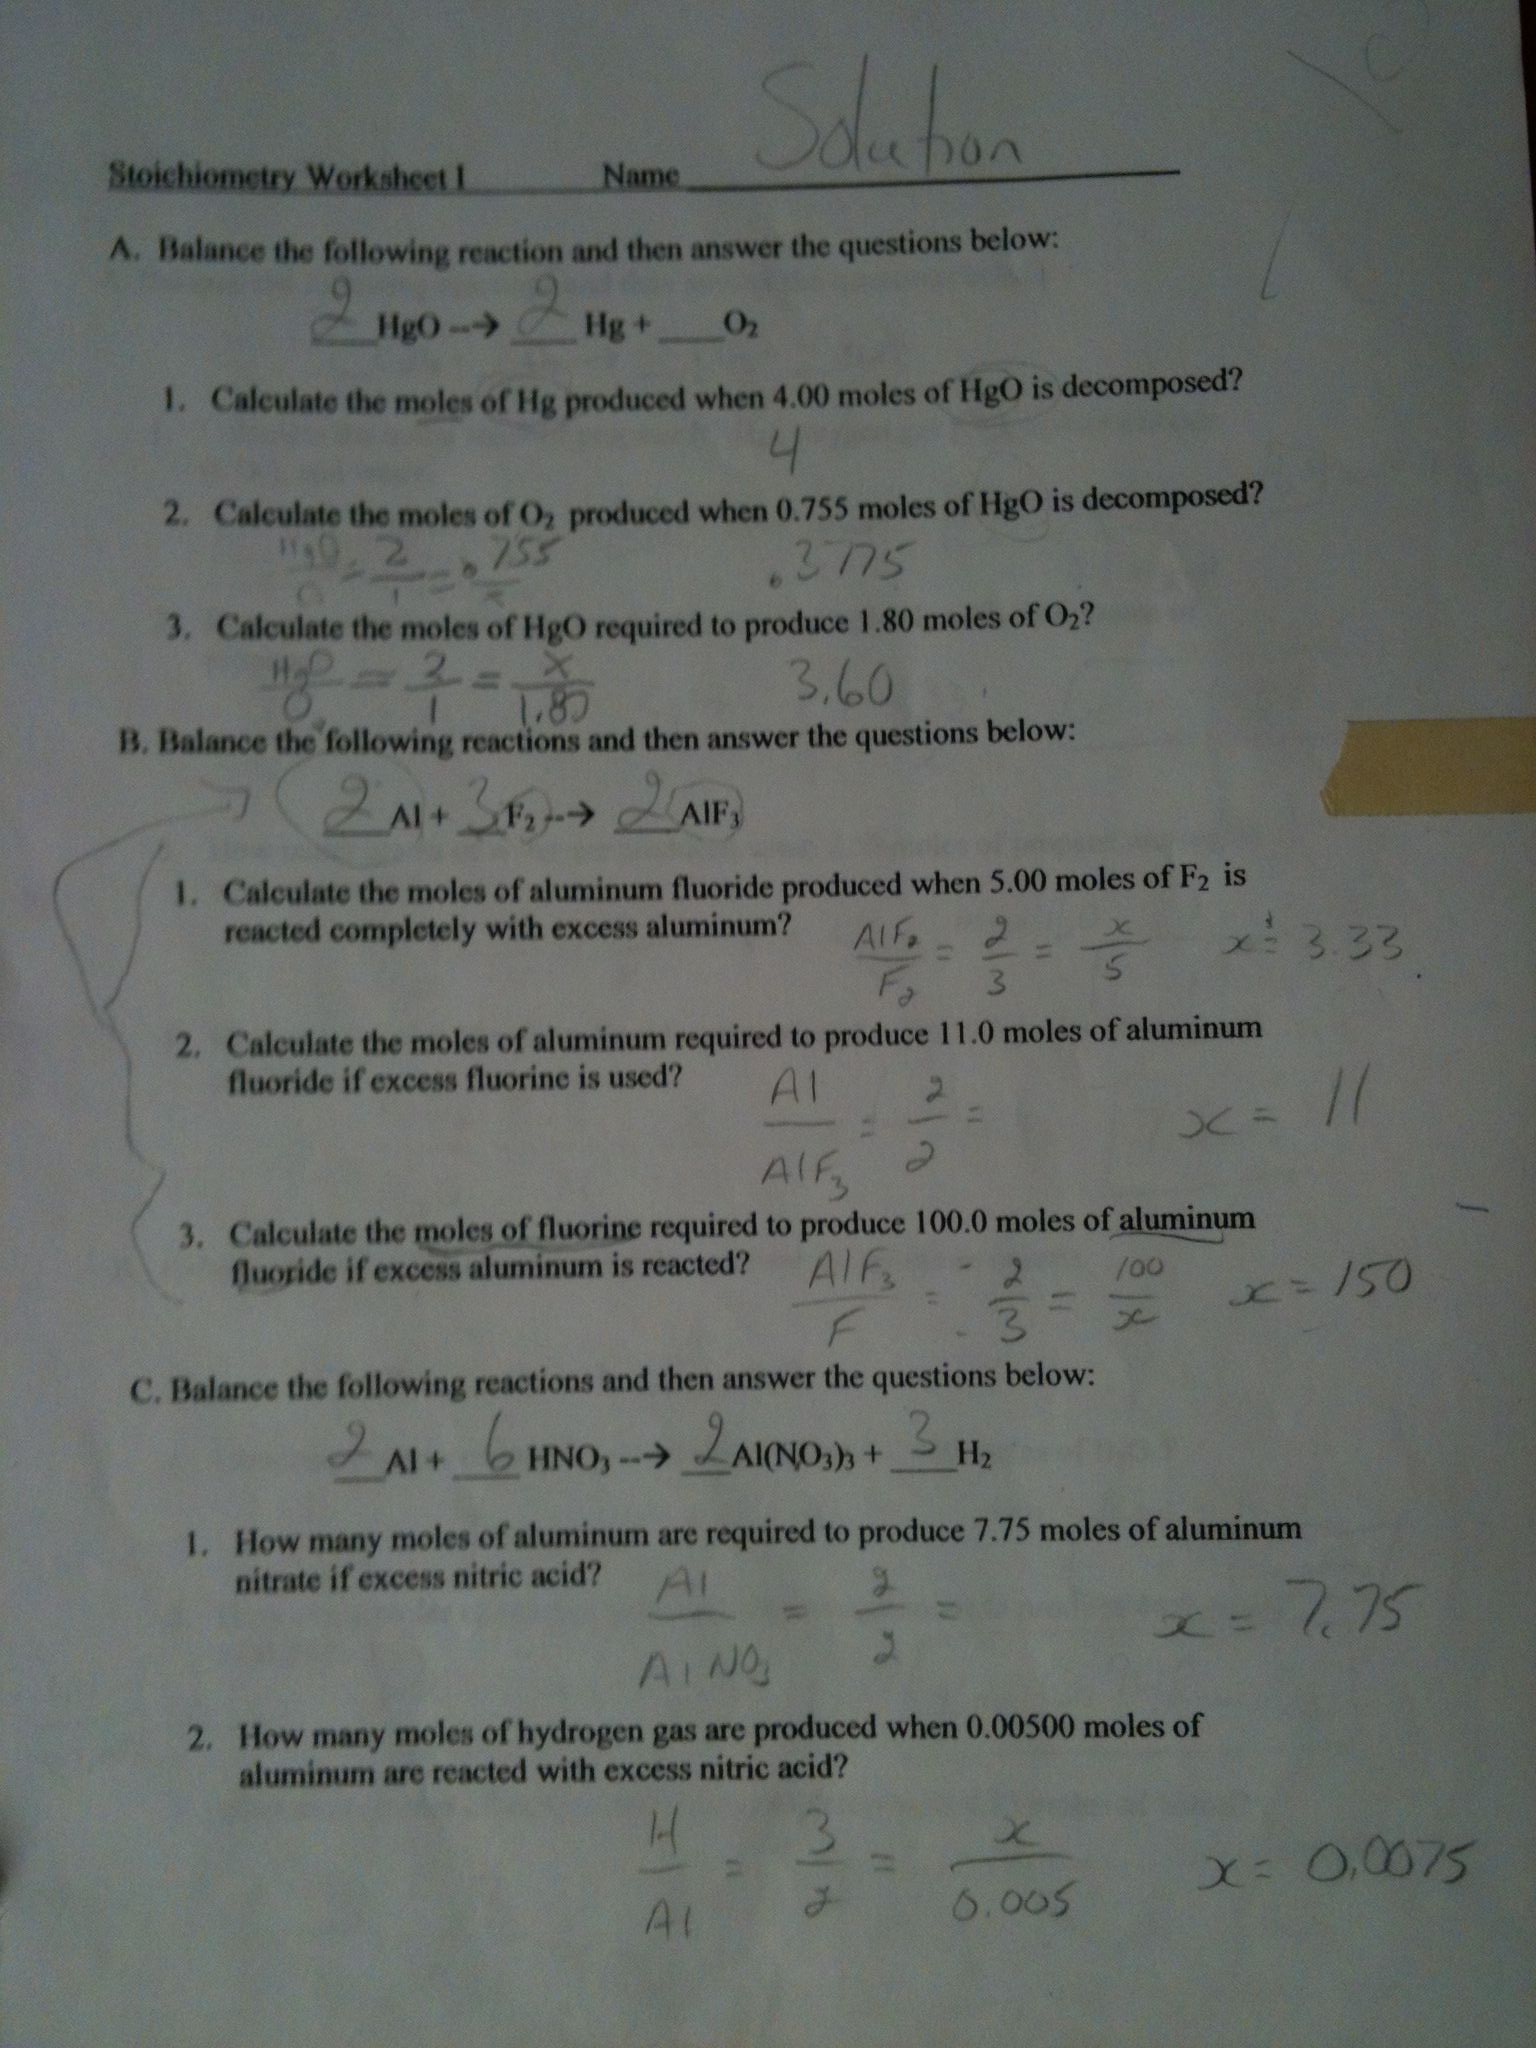 Solution
Stoichiometry Worksheet I Name
A. Balance the following reaction and then answer the questions below:
2 HgO --→ 2 Hg + ___ O₂
1. Calculate the moles of Hg produced when 4.00 moles of HgO is decomposed?
4
2. Calculate the moles of O₂ produced when 0.755 moles of HgO is decomposed?
HgO = 2/1 = .755 .3775
3. Calculate the moles of HgO required to produce 1.80 moles of O₂?
HgO/O = 2/1 = x/1.80 3.60
B. Balance the following reactions and then answer the questions below:
2 Al + 3 F₂ --→ 2 AlF₃
1. Calculate the moles of aluminum fluoride produced when 5.00 moles of F₂ is
reacted completely with excess aluminum? AlF₃/F₂ = 2/3 = x/5 x = 3.33
2. Calculate the moles of aluminum required to produce 11.0 moles of aluminum
fluoride if excess fluorine is used? Al/AlF₃ = 2/2 = x = 11
3. Calculate the moles of fluorine required to produce 100.0 moles of aluminum
fluoride if excess aluminum is reacted? AlF₃/F = 2/3 = 100/x x = 150
C. Balance the following reactions and then answer the questions below:
2 Al + 6 HNO₃ --→ 2 Al(NO₃)₃ + 3 H₂
1. How many moles of aluminum are required to produce 7.75 moles of aluminum
nitrate if excess nitric acid? Al/AlNO₃ = 2/2 = x = 7.75
2. How many moles of hydrogen gas are produced when 0.00500 moles of
aluminum are reacted with excess nitric acid?
H/Al = 3/2 = x/0.005 x = 0.0075